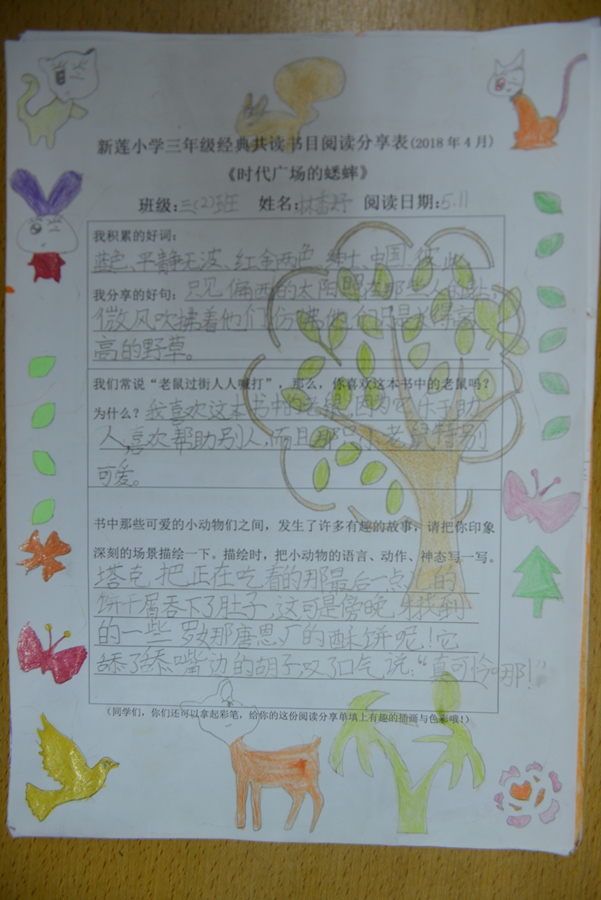 新莲小学三年级经典共读书目阅读分享表(2018年4月)
《时代广场的蟋蟀》
班级:三(2)班 姓名:林 妤 阅读日期:5.11
我积累的好词:
蓝色、平静无波、红金两色、绅士、中国、彼此。
我分享的好句:只见偏西的太阳照在那些人的脸上,
微风吹拂着他们,仿佛他们只是长得高
高的野草。
我们常说“老鼠过街人人喊打”,那么,你喜欢这本书中的老鼠吗?
为什么?我喜欢这本书中的老鼠,因为它乐于助
人,喜欢帮助别人,而且那只小老鼠特别
可爱。
书中那些可爱的小动物们之间,发生了许多有趣的故事,请把你印象
深刻的场景描绘一下。描绘时,把小动物的语言、动作、神态写一写。
塔克把正在吃着的那最后一点 的
饼干屑吞下了肚子,这可是傍晚 找到
的一些罗娜唐恩厂的酥饼呢!它
舔了舔嘴边的胡子,叹了口气,说:“真可怜哪!”
(同学们,你们还可以拿起彩笔,给你的这份阅读分享单填上有趣的插画与色彩哦!)